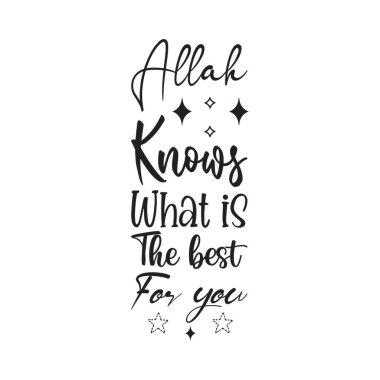 Allah
Knows
What is
The best
For you